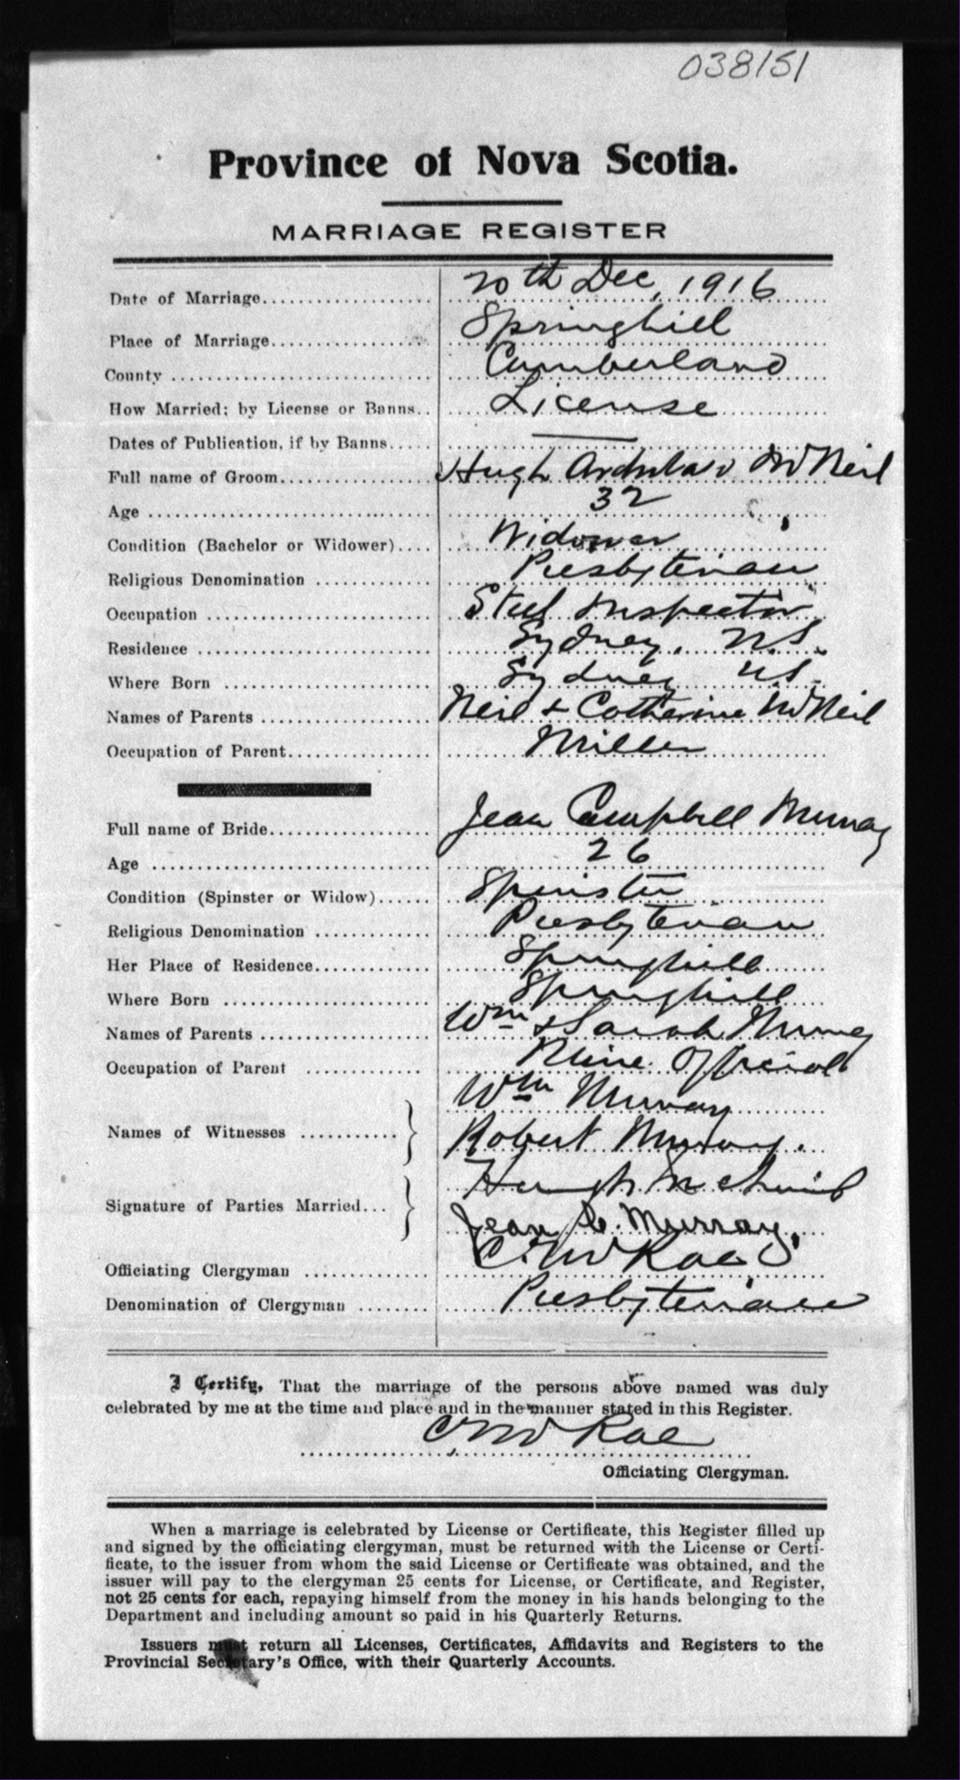 038151
Province of Nova Scotia.
MARRIAGE REGISTER
Date of Marriage 20th Dec, 1916
Place of Marriage Springhill
County Cumberland
How Married; by License or Banns License
Dates of Publication, if by Banns —
Full name of Groom Hugh McNeil
Age 32
Condition (Bachelor or Widower) Widower
Religious Denomination Presbyterian
Occupation Steel Inspector
Residence Sydney, N.S.
Where Born Sydney N.S.
Names of Parents Neil + Catherine McNeil
Occupation of Parent Miller
Full name of Bride Jean Campbell Murray
Age 26
Condition (Spinster or Widow) Spinster
Religious Denomination Presbyterian
Her Place of Residence Springhill
Where Born Springhill
Names of Parents Wm & Sarah Murray
Occupation of Parent Mine Official
Wm Murray
Names of Witnesses } Robert Murray.
Hugh
Signature of Parties Married } Jean C. Murray.
Officiating Clergyman C. McRae
Denomination of Clergyman Presbyterian
I Certify, That the marriage of the persons above named was duly
celebrated by me at the time and place and in the manner stated in this Register.
C McRae
Officiating Clergyman.
When a marriage is celebrated by License or Certificate, this Register filled up
and signed by the officiating clergyman, must be returned with the License or Certi-
ficate, to the issuer from whom the said License or Certificate was obtained, and the
issuer will pay to the clergyman 25 cents for License, or Certificate, and Register,
not 25 cents for each, repaying himself from the money in his hands belonging to the
Department and including amount so paid in his Quarterly Returns.
Issuers must return all Licenses, Certificates, Affidavits and Registers to the
Provincial Secretary's Office, with their Quarterly Accounts.